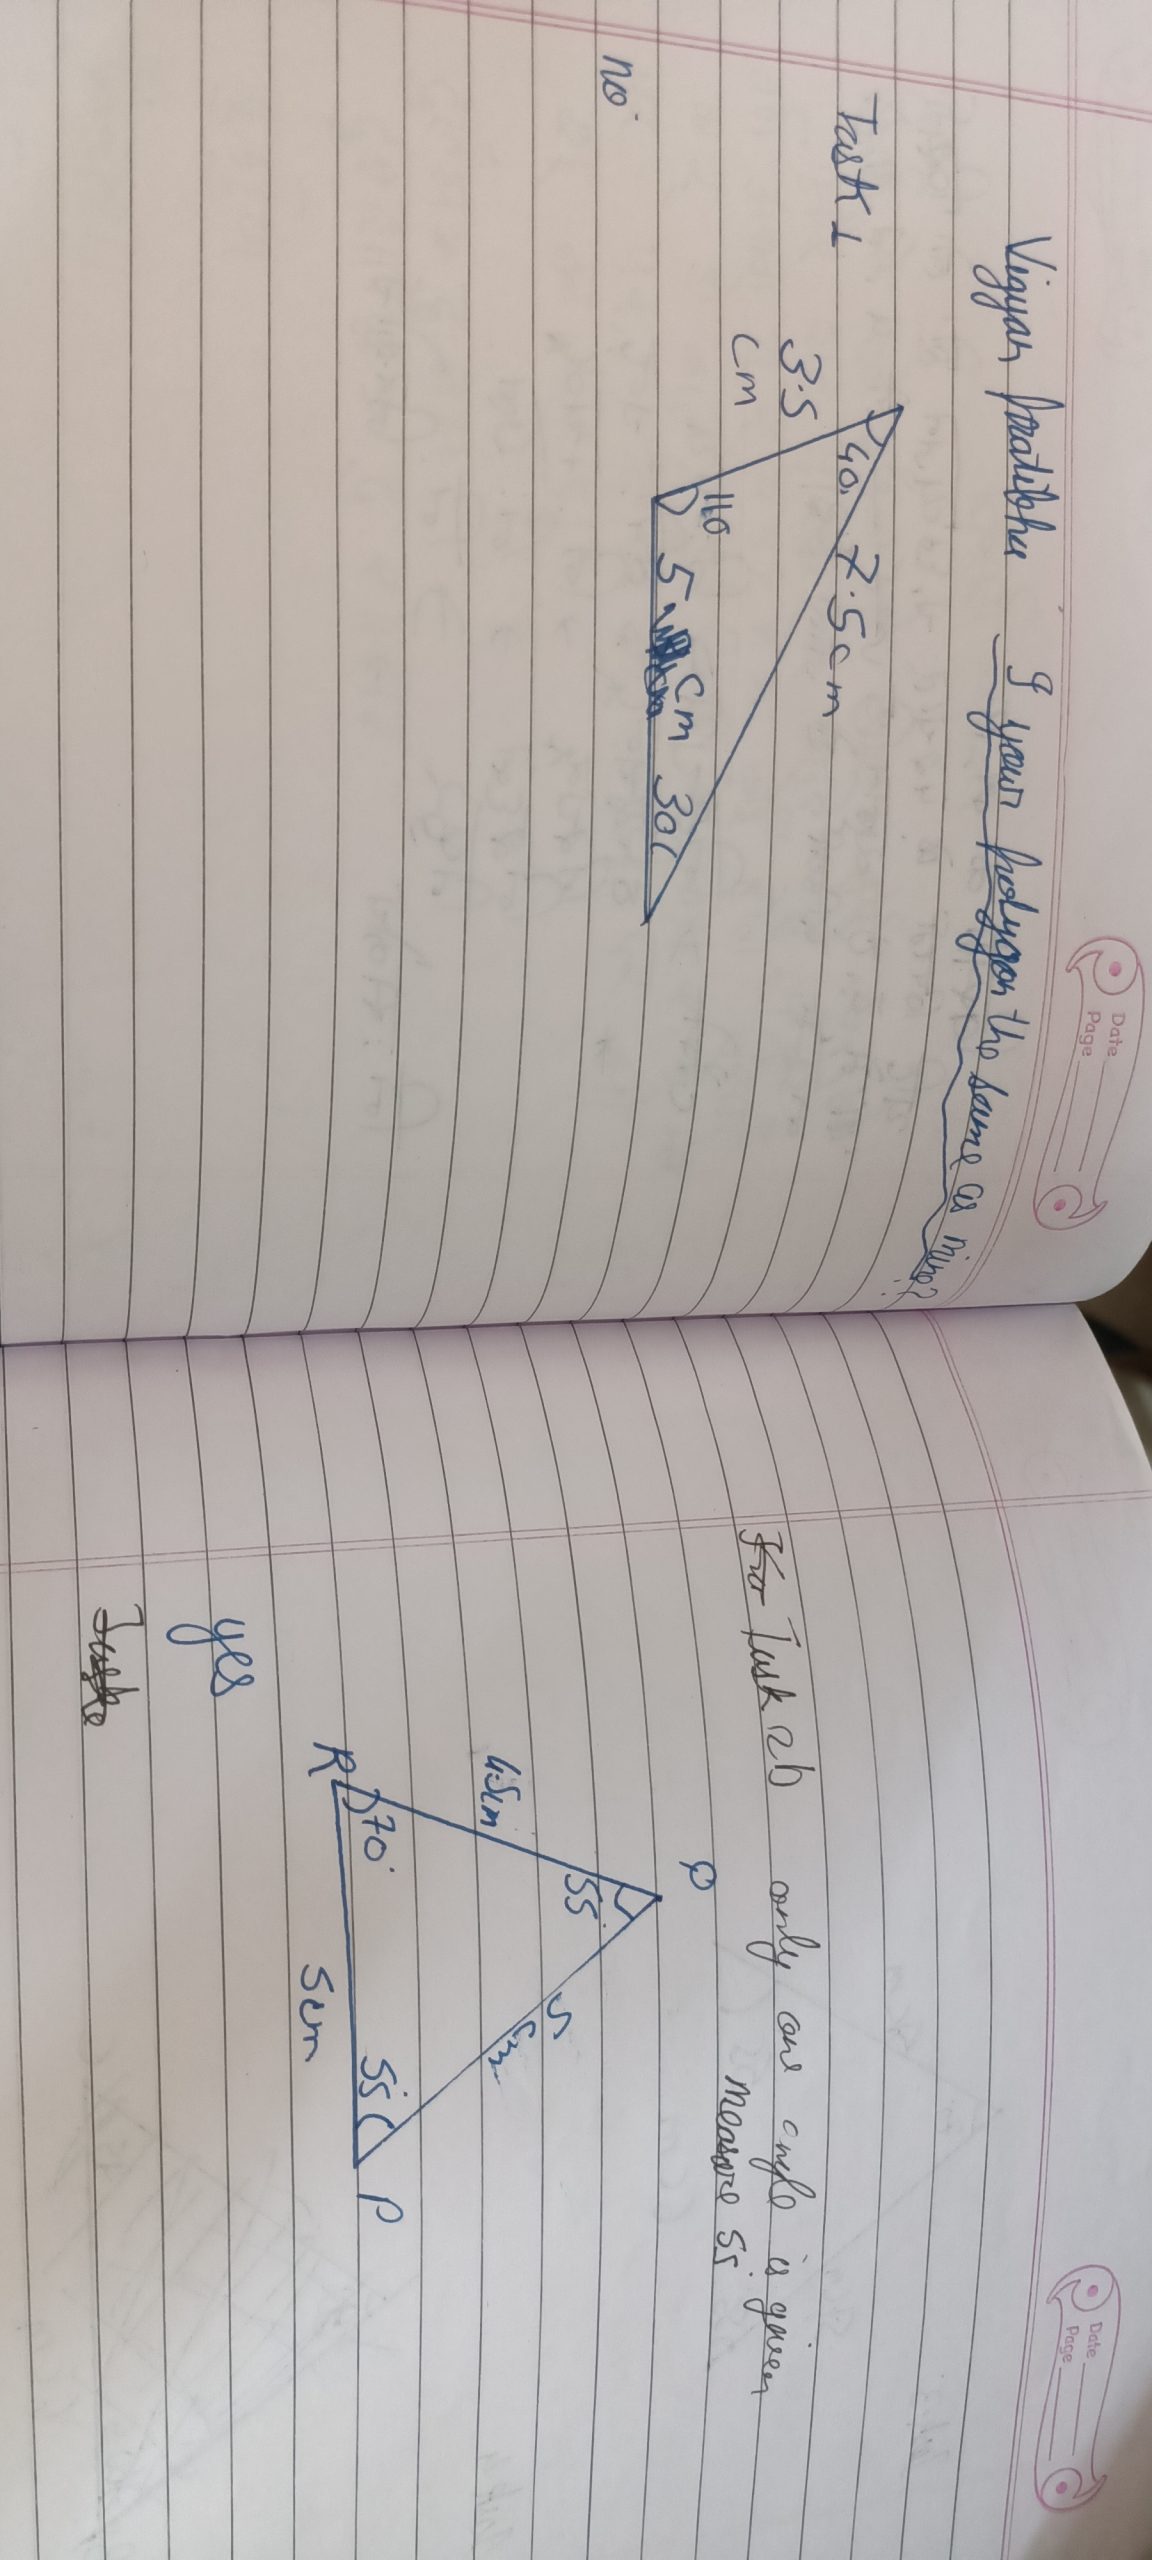 Date
Page
Vigyan pratibha I your polygon the same as mine?
Task 1
40.
7.5cm
3.5
cm
110
5 cm 30
no
Date
Page
For Task 2b only one angle is given
measure 55°
Q
55°
4.5cm
5
cm
70°
55°
R
P
5cm
yes